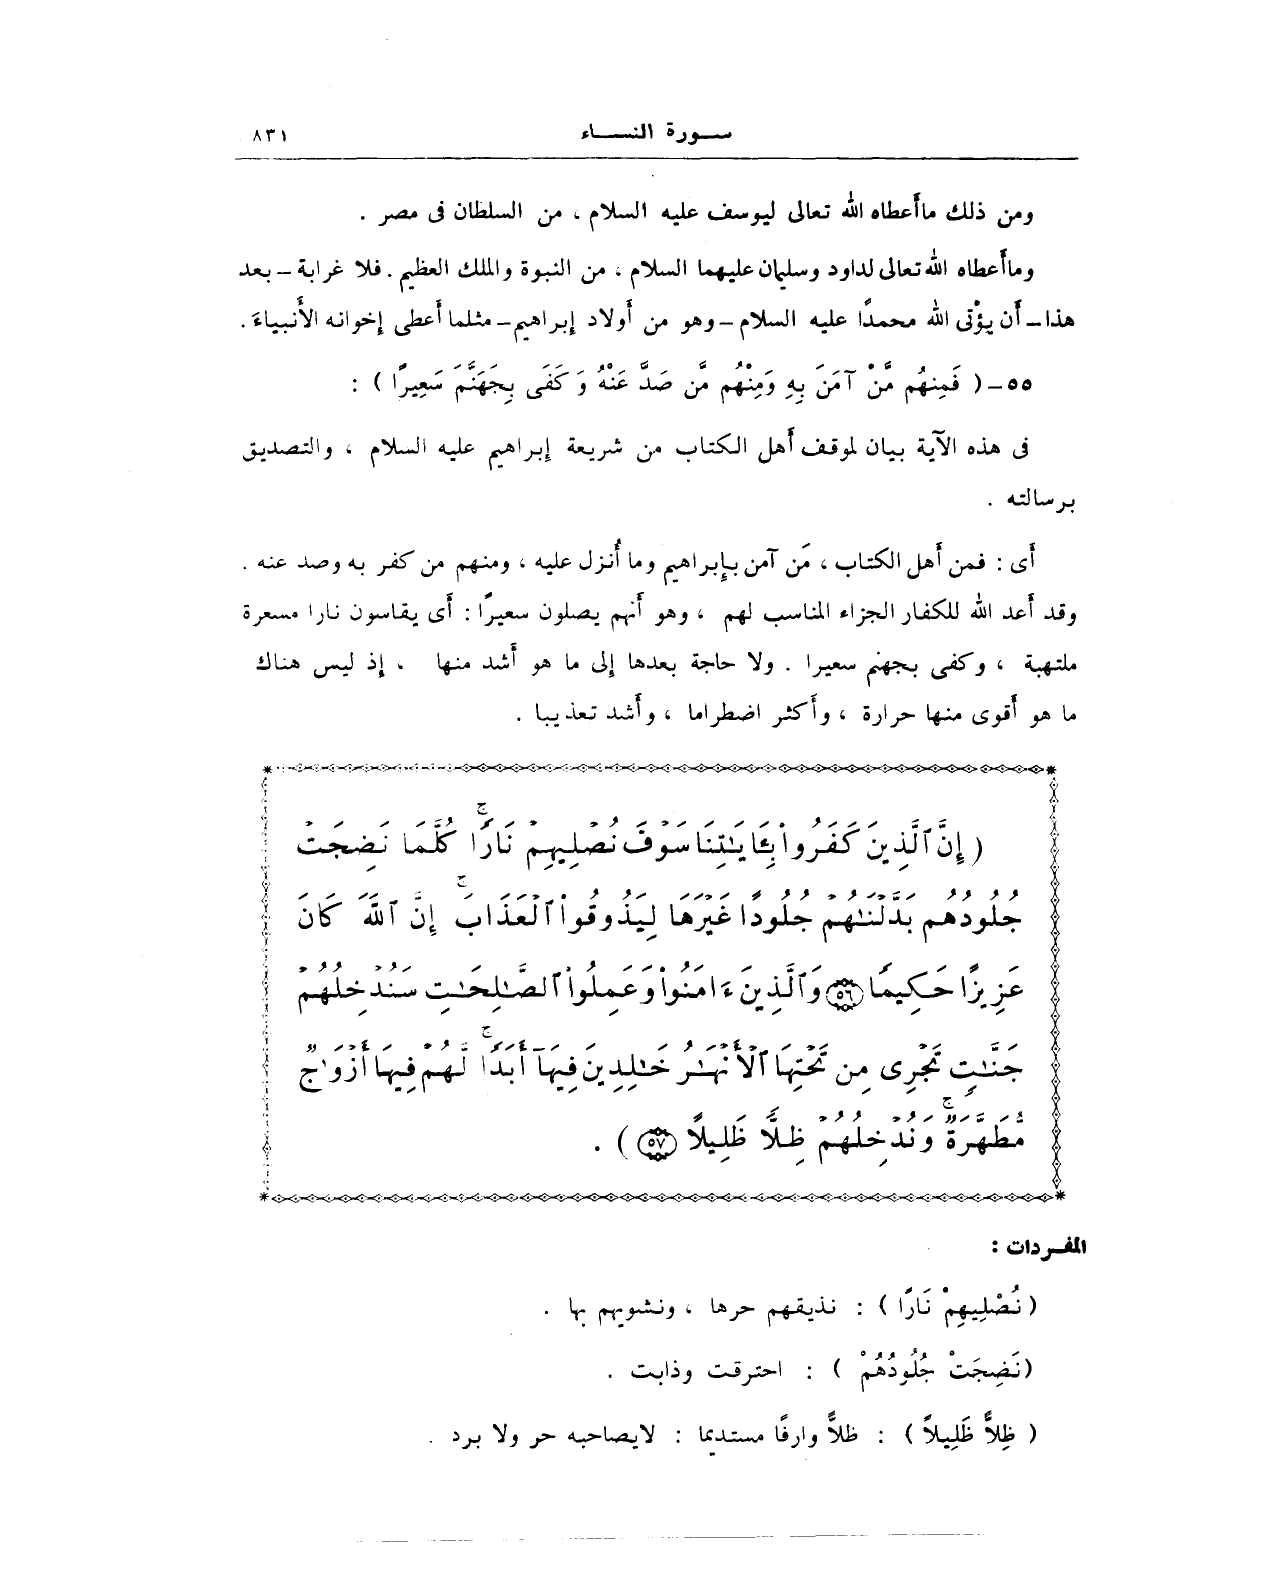 سورة النساء ٨٣١
ومن ذلك ماأعطاه الله تعالى ليوسف عليه السلام ، من السلطان فى مصر .
وماأعطاه الله تعالى لداود وسليمان عليهما السلام ، من النبوة والملك العظيم . فلا غرابة - بعد
هذا - أن يؤْتى الله محمدًا عليه السلام - وهو من أولاد إبراهيم - مثلما أعطى إخوانه الأنبياءَ .
٥٥ - ( فَمِنهُم مَّنْ آمَنَ بِهِ وَمِنْهُم مَّن صَدَّ عَنْهُ وَكَفَى بِجَهَنَّمَ سَعِيرًا ) :
فى هذه الآية بيان لموقف أهل الكتاب من شريعة إبراهيم عليه السلام ، والتصديق
برسالته .
أى : فمن أهل الكتاب ، مَن آمن بإبراهيم وما أُنزل عليه ، ومنهم من كفر به وصد عنه .
وقد أعد الله للكفار الجزاء المناسب لهم ، وهو أنهم يصلون سعيرًا : أى يقاسون نارا مسعرة
ملتهبة ، وكفى بجهنم سعيرا . ولا حاجة بعدها إلى ما هو أشد منها ، إذ ليس هناك
ما هو أقوى منها حرارة ، وأكثر اضطراما ، وأشد تعذيبا .
( إِنَّ ٱلَّذِينَ كَفَرُوا۟ بِـَٔايَـٰتِنَا سَوْفَ نُصْلِيهِمْ نَارًا ۚ كُلَّمَا نَضِجَتْ
جُلُودُهُم بَدَّلْنَـٰهُمْ جُلُودًا غَيْرَهَا لِيَذُوقُوا۟ ٱلْعَذَابَ ۚ إِنَّ ٱللَّهَ كَانَ
عَزِيزًا حَكِيمًا ٥٦ وَٱلَّذِينَ ءَامَنُوا۟ وَعَمِلُوا۟ ٱلصَّـٰلِحَـٰتِ سَنُدْخِلُهُمْ
جَنَّـٰتٍ تَجْرِى مِن تَحْتِهَا ٱلْأَنْهَـٰرُ خَـٰلِدِينَ فِيهَآ أَبَدًا ۚ لَّهُمْ فِيهَآ أَزْوَٰجٌ
مُّطَهَّرَةٌ ۚ وَنُدْخِلُهُمْ ظِلًّا ظَلِيلًا ٥٧ ) .
المفردات :
( نُصْلِيهِمْ نَارًا ) : نذيقهم حرها ، ونشويهم بها .
( نَضِجَتْ جُلُودُهُمْ ) : احترقت وذابت .
( ظِلاًّ ظَلِيلاً ) : ظلاًّ وارفًا مستديما : لايصاحبه حر ولا برد .